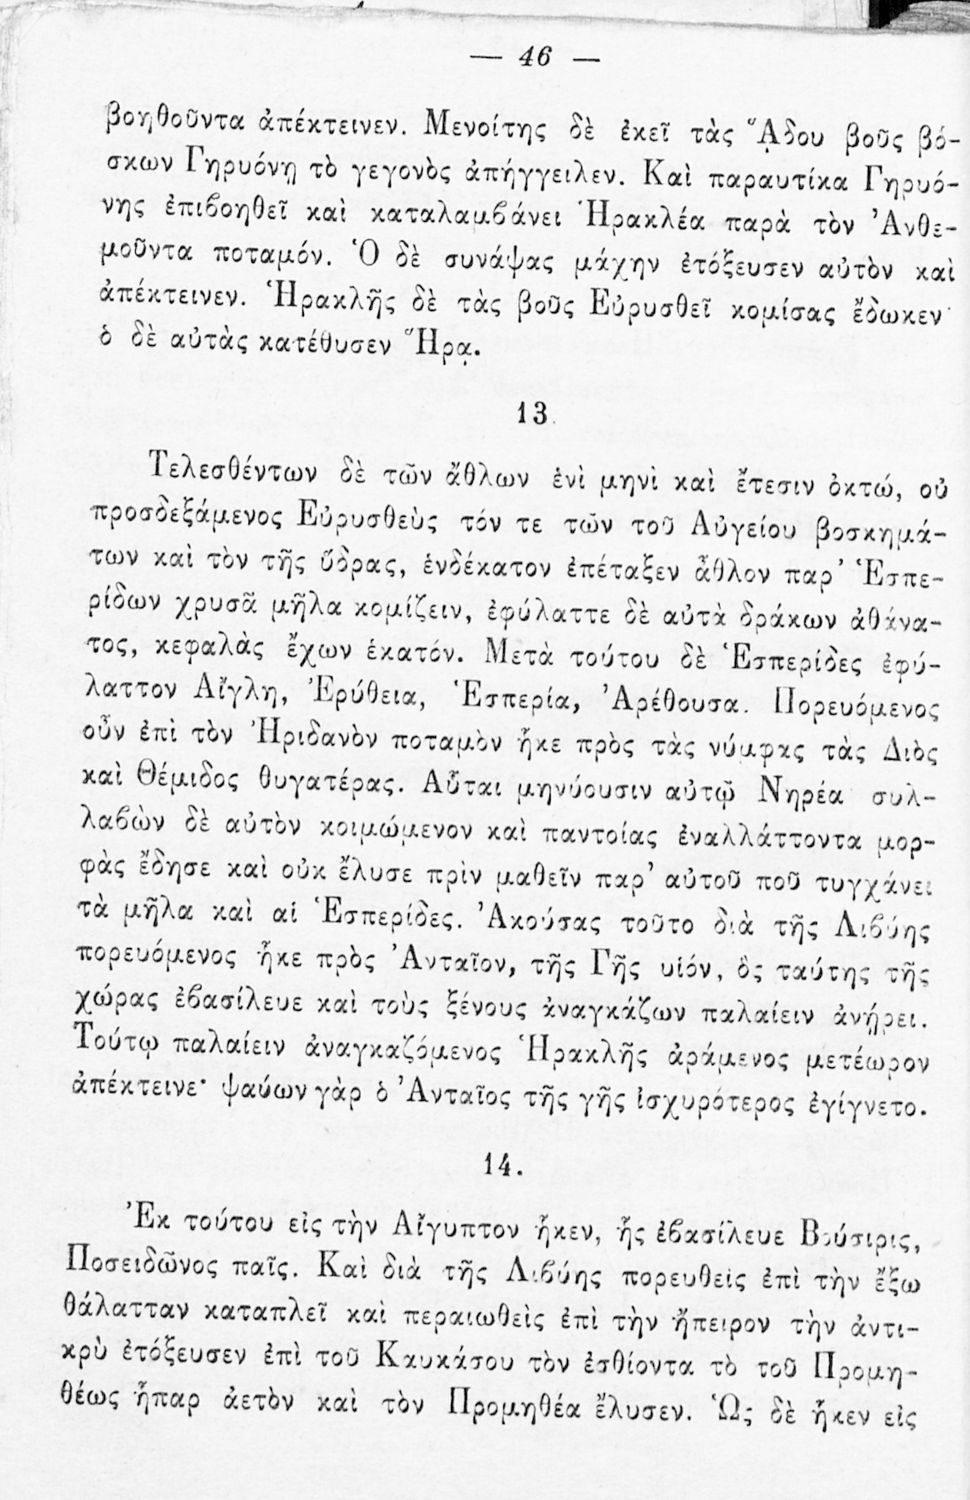 — 46 —
βοηθοῦντα ἀπέκτεινεν. Μενοίτης δὲ ἐκεῖ τὰς ᾍδου βοῦς βό-
σκων Γηρυόνῃ τὸ γεγονὸς ἀπήγγειλεν. Καὶ παραυτίκα Γηρυό-
νης ἐπιϐοηθεῖ καὶ καταλαμϐάνει Ἡρακλέα παρὰ τὸν Ἀνθε-
μοῦντα ποταμόν. Ὁ δὲ συνάψας μάχην ἐτόξευσεν αὐτὸν καὶ
ἀπέκτεινεν. Ἡρακλῆς δὲ τὰς βοῦς Εὐρυσθεῖ κομίσας ἔδωκεν·
ὁ δὲ αὐτὰς κατέθυσεν Ἥρᾳ.
13.
Τελεσθέντων δὲ τῶν ἄθλων ἑνὶ μηνὶ καὶ ἔτεσιν ὀκτώ, οὐ
προσδεξάμενος Εὐρυσθεὺς τόν τε τῶν τοῦ Αὐγείου βοσκημά-
των καὶ τὸν τῆς ὕδρας, ἑνδέκατον ἐπέταξεν ἆθλον παρ’ Ἑσπε-
ρίδων χρυσᾶ μῆλα κομίζειν, ἐφύλαττε δὲ αὐτὰ δράκων ἀθάνα-
τος, κεφαλὰς ἔχων ἑκατόν. Μετὰ τούτου δὲ Ἑσπερίδες ἐφύ-
λαττον Αἴγλη, Ἐρύθεια, Ἑσπερία, Ἀρέθουσα. Πορευόμενος
οὖν ἐπὶ τὸν Ἠριδανὸν ποταμὸν ἧκε πρὸς τὰς νύμφας τὰς Διὸς
καὶ Θέμιδος θυγατέρας. Αὗται μηνύουσιν αὐτῷ Νηρέα· συλ-
λαϐὼν δὲ αὐτὸν κοιμώμενον καὶ παντοίας ἐναλλάττοντα μορ-
φὰς ἔδησε καὶ οὐκ ἔλυσε πρὶν μαθεῖν παρ’ αὐτοῦ ποῦ τυγχάνει
τὰ μῆλα καὶ αἱ Ἑσπερίδες. Ἀκούσας τοῦτο διὰ τῆς Λιϐύης
πορευόμενος ἧκε πρὸς Ἀνταῖον, τῆς Γῆς υἱόν, ὃς ταύτης τῆς
χώρας ἐϐασίλευε καὶ τοὺς ξένους ἀναγκάζων παλαίειν ἀνῄρει.
Τούτῳ παλαίειν ἀναγκαζόμενος Ἡρακλῆς ἀράμενος μετέωρον
ἀπέκτεινε· ψαύων γὰρ ὁ Ἀνταῖος τῆς γῆς ἰσχυρότερος ἐγίγνετο.
14.
Ἐκ τούτου εἰς τὴν Αἴγυπτον ἧκεν, ἧς ἐϐασίλευε Βούσιρις,
Ποσειδῶνος παῖς. Καὶ διὰ τῆς Λιϐύης πορευθεὶς ἐπὶ τὴν ἔξω
θάλατταν καταπλεῖ καὶ περαιωθεὶς ἐπὶ τὴν ἤπειρον τὴν ἀντι-
κρὺ ἐτόξευσεν ἐπὶ τοῦ Καυκάσου τὸν ἐσθίοντα τὸ τοῦ Προμη-
θέως ἧπαρ ἀετὸν καὶ τὸν Προμηθέα ἔλυσεν. Ὡς δὲ ἧκεν εἰς